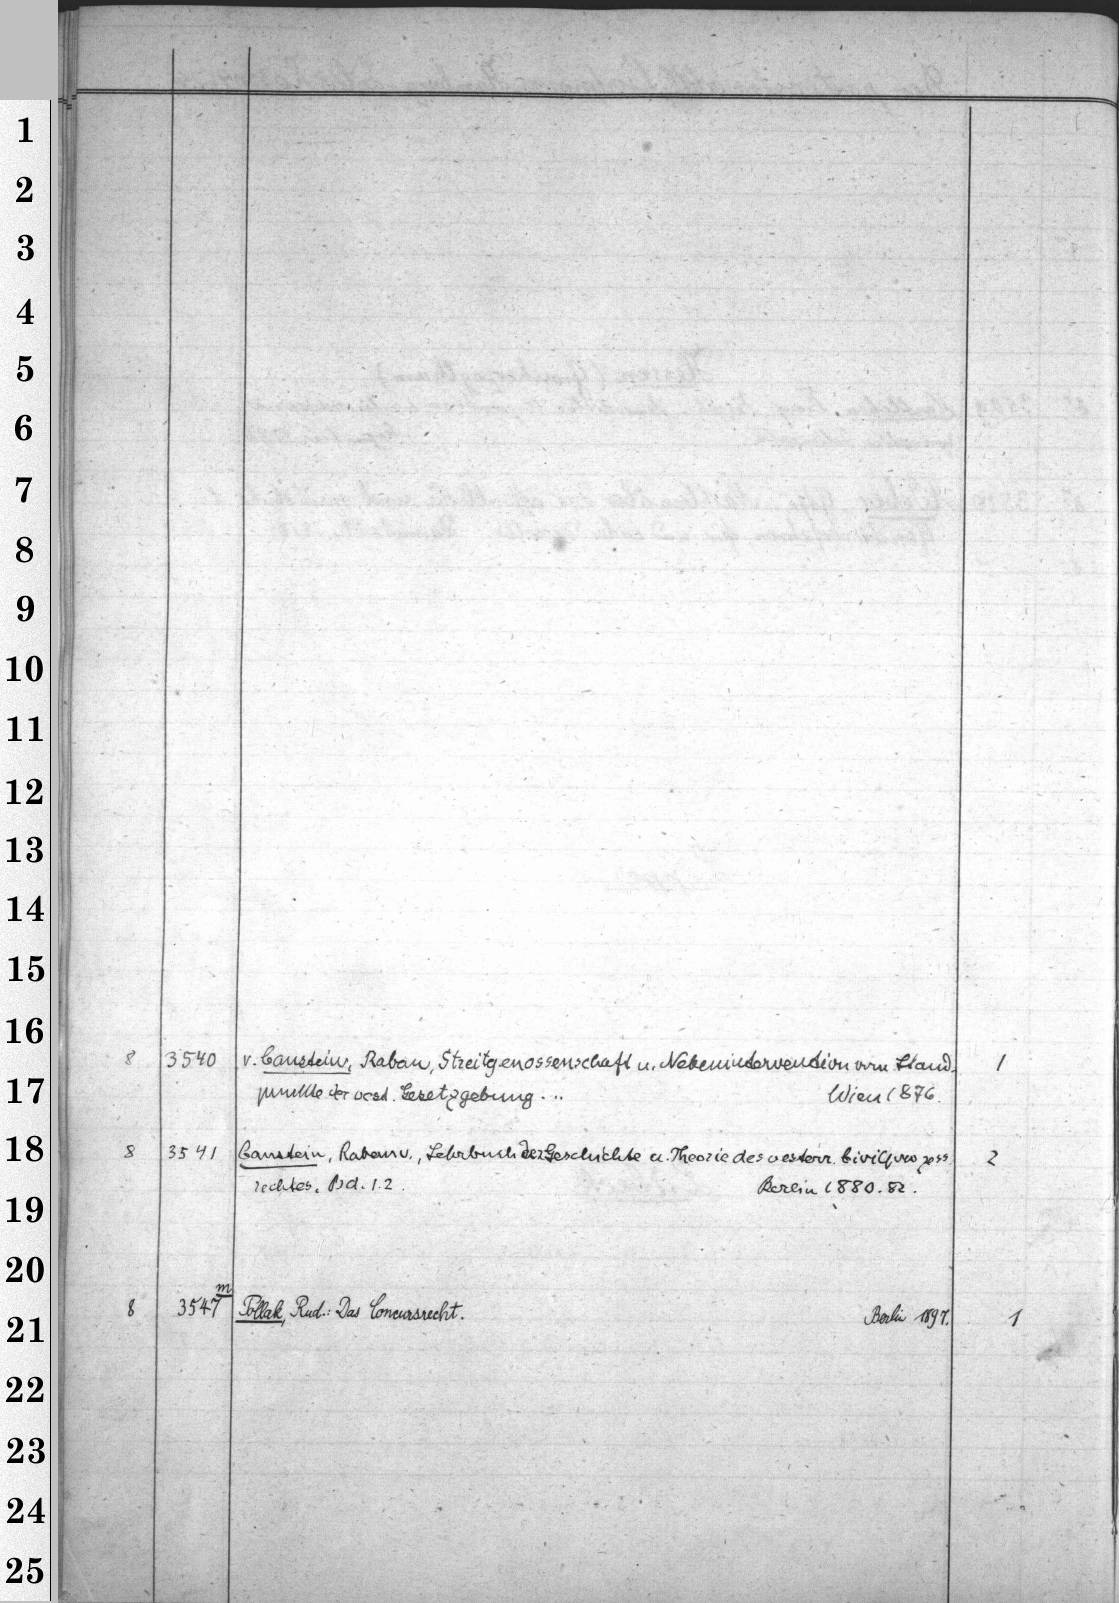 1
2
3
4
5
6
7
8
9
10
11
12
13
14
15
16
8 3540 v. Canstein, Raban, Streitgenossenschaft u. Nebenintervention vom Stand-
17
punkte der oest. Gesetzgebung... Wien 1876.
18
8 3541 Canstein, Raban v., Lehrbuch der Geschichte u. Theorie des oesterr. Civilprozess
rechtes. Bd. 1.2. Berlin 1880.82. 2
19
20
8 3547m Pollak, Rud.: Das Concursrecht. Berlin 1897. 1
21
22
23
24
25